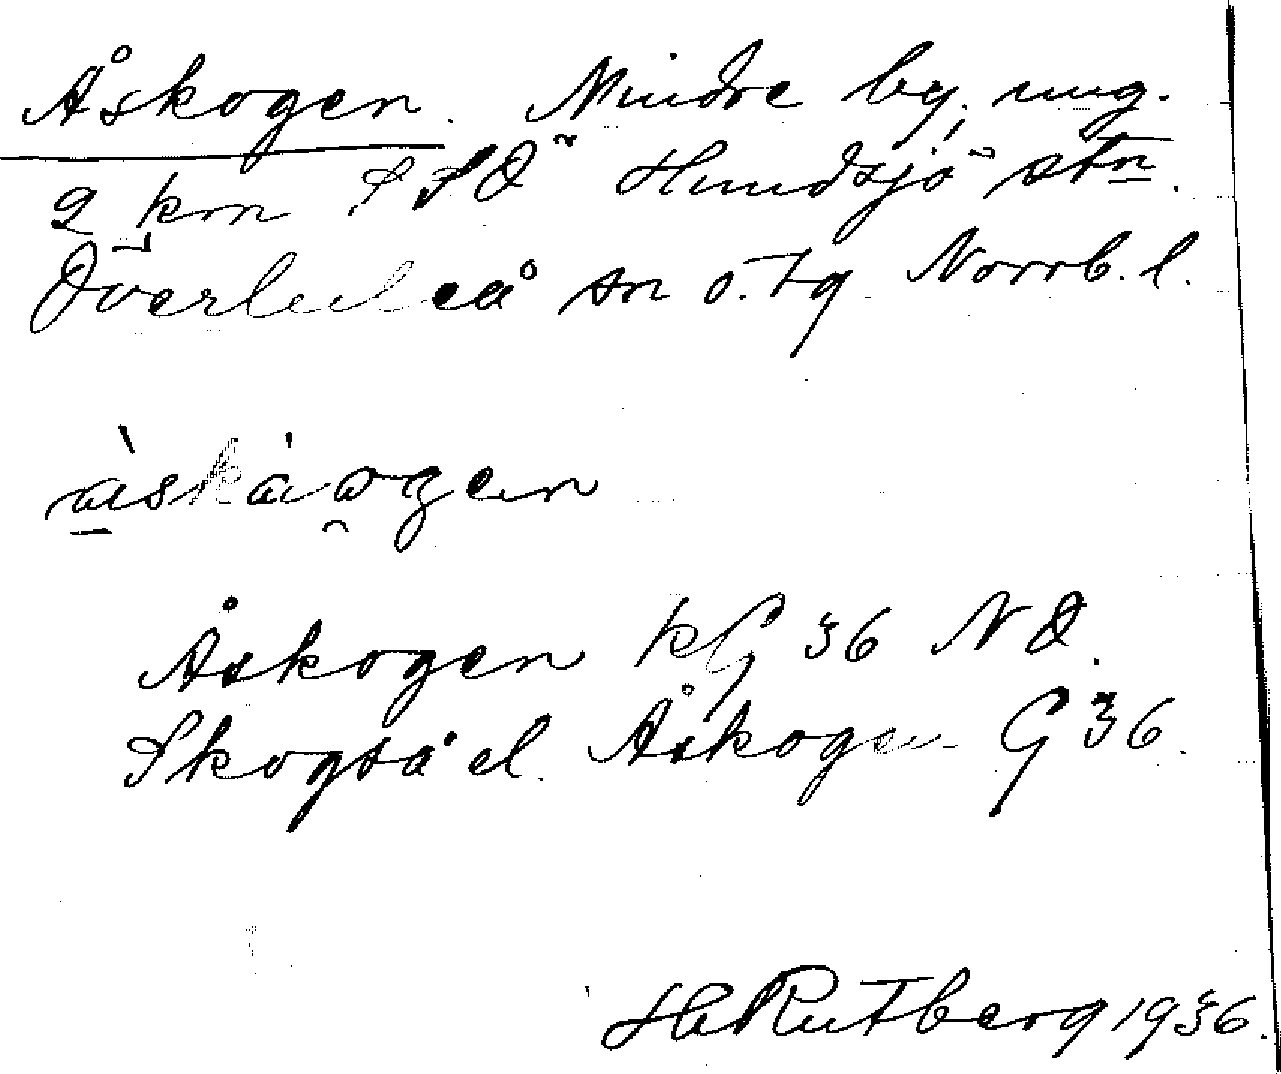 Åskogen. Mindre by, ung.
2 km SSÖ Hundsjö stn.
Överluleå sn o. tg. Norrb. l.
åskåogen
Åskogen kG 36 NÖ.
Skogså el. Åskogen G 36.
H. Rutberg 1936.